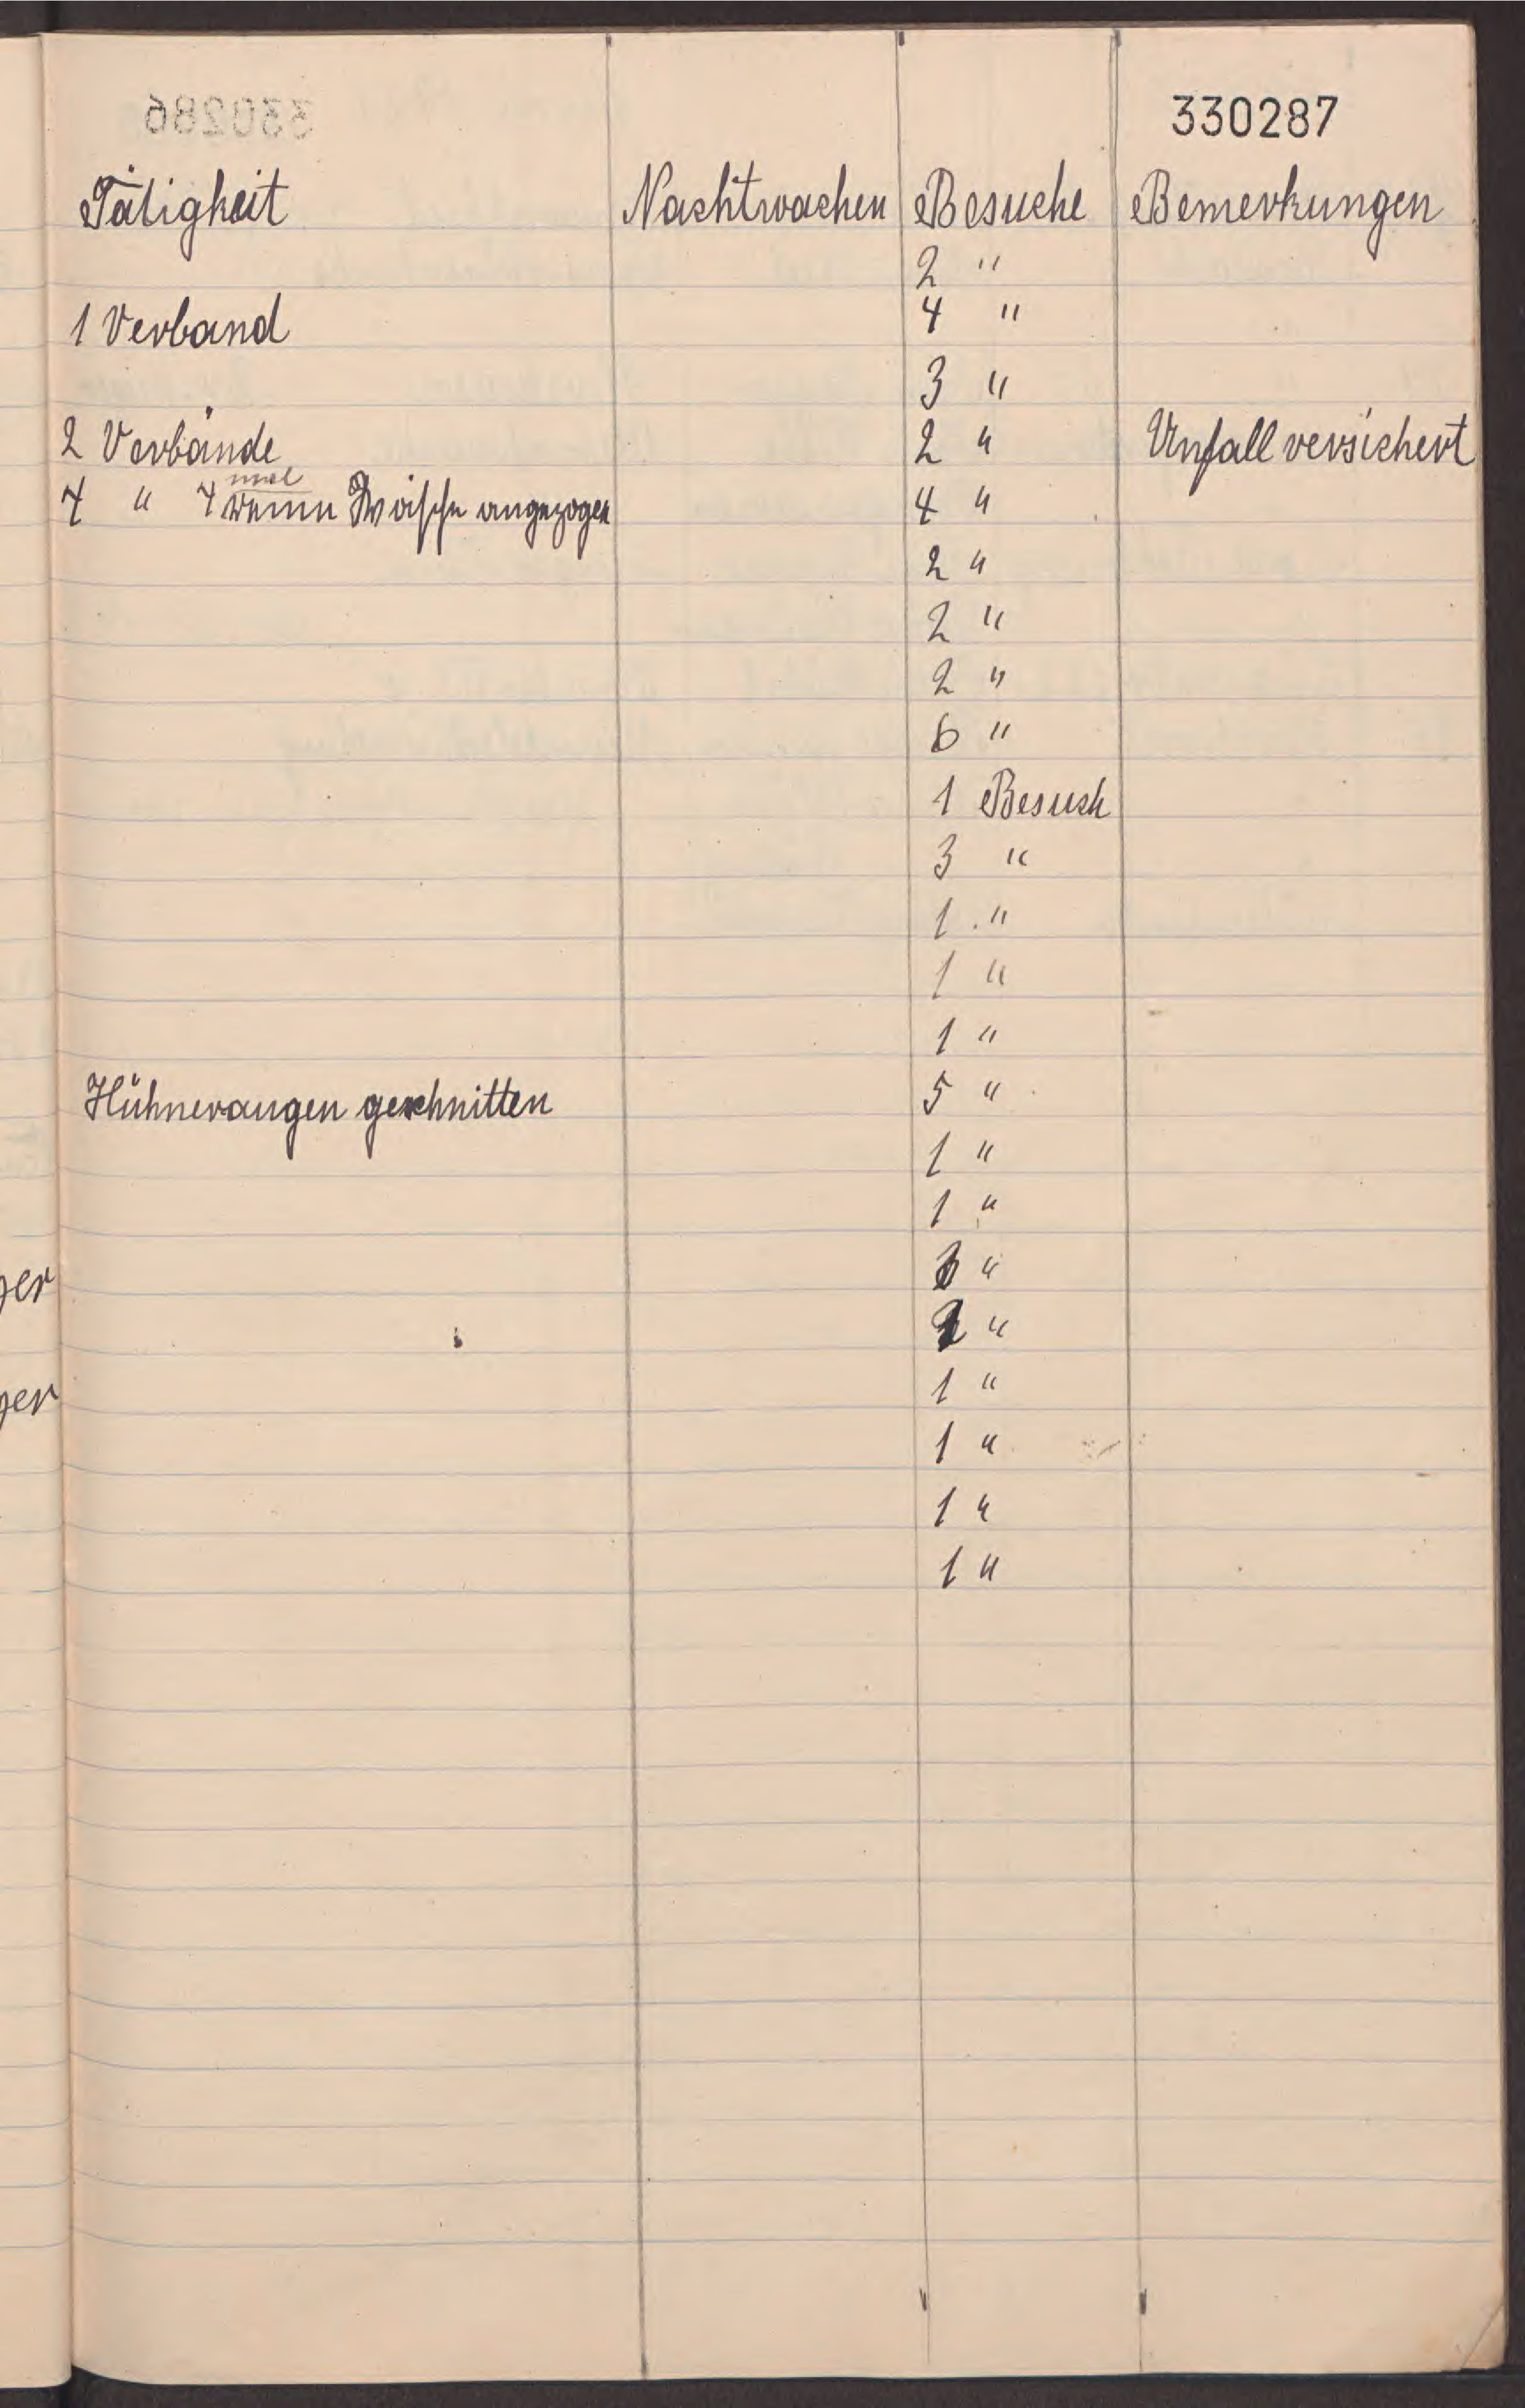 330287
Tätigkeit Nachtwachen Besuche Bemerkungen
2 "
1 Verband 4 "
3 "
2 Verbände 2 " Unfall versichert
mal
4 " 4 reine Wäsche angezogen 4 "
2 "
2 "
2 "
6 "
1 Besuch
3 "
1 "
1 "
1 "
Hühneraugen geschnitten 5 "
1 "
1 "
"
"
1 "
1 "
1 "
1 "